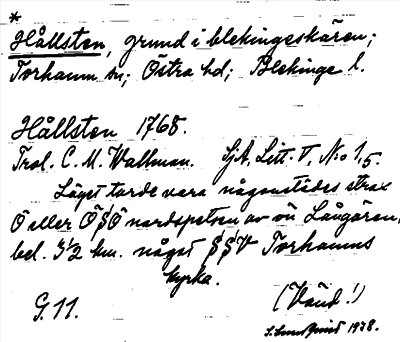 *
Hållsten, grund i blekingeskären;
Torhamn sn; Östra hd; Blekinge l.
Hållsten 1768.
Trol. C. M. Wallman. SjA, Litt. V, N:o 1,5.
Läget torde vara någonstädes strax
Ö eller ÖSÖ nordspetsen av ön Långören,
bel. 3 1/2 km. något SSV Torhamns
kyrka.
G. 11. (Vänd!)
1938.